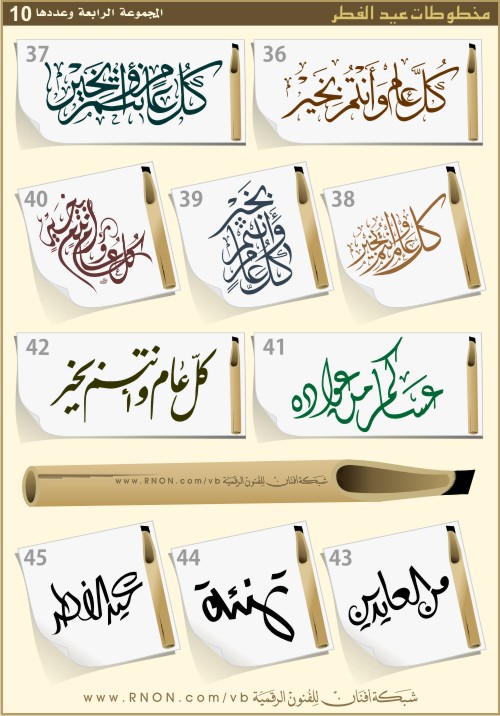 مخطوطات عيد الفطر
المجموعة الرابعة وعددها 10
36
كل عام وأنتم بخير
37
كل عام وأنتم بخير
38
كل عام وأنتم بخير
39
كل عام وأنتم بخير
40
كل عام وأنتم بخير
41
عساكم من عواده
42
كل عام وأنتم بخير
شبكة أفنان للفنون الرقمية www.RNON.com/vb
43
من العايدين
44
تهنئة
45
عيد الفطر
شبكة أفنان للفنون الرقمية www.RNON.com/vb